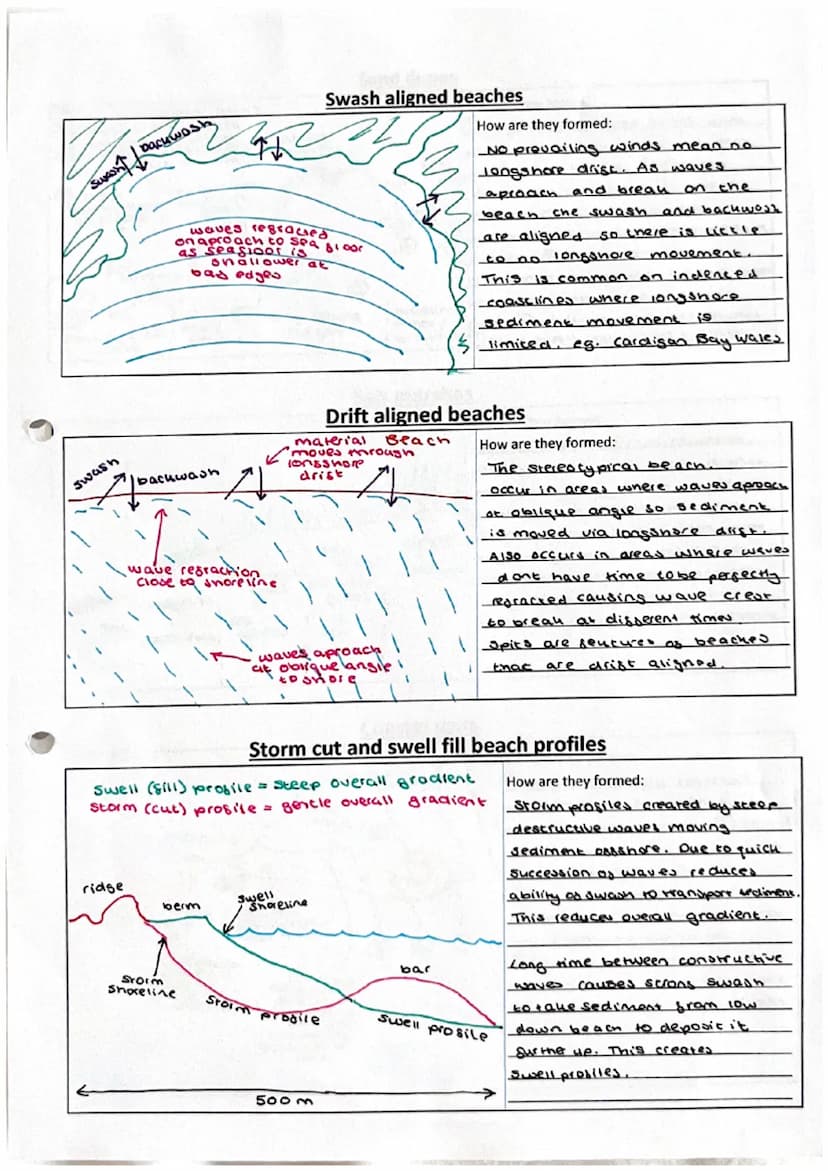 Swash aligned beaches
swash
backwash
waves refracted
on aproach to sea floor
as seafloor is
shallower at
bay edges
How are they formed:
No prevailing winds mean no
longshore drift. As waves
aproach and break on the
beach the swash and backwash
are aligned so there is little
to no longshore movement.
This is common on indented
coastlines where longshore
sediment movement is
limited. eg. Cardigan Bay Wales
Drift aligned beaches
swash
backwash
material
moves through
longshore
drift
Beach
wave refraction
close to shoreline
waves aproach
at oblique angle
to shore
How are they formed:
The stereotypical beach.
occur in areas where waves aproach
at oblique angle so sediment
is moved via longshore drift.
Also occurs in areas where waves
dont have time to be perfectly
refracted causing wave crest
to break at different times
Spits are features of beaches
that are drift aligned.
Storm cut and swell fill beach profiles
Swell (fill) profile = steep overall gradient
Storm (cut) profile = gentle overall gradient
ridge
berm
swell
shoreline
storm
shoreline
storm profile
bar
swell profile
500m
How are they formed:
Storm profiles created by steep
destructive waves moving
sediment offshore. Due to quick
succession of waves reduces
ability of swash to transport sediment.
This reduces overall gradient.
Long time between constructive
waves causes strong swash
to take sediment from low
down beach to deposit it
furthe up. This creates
swell profiles.